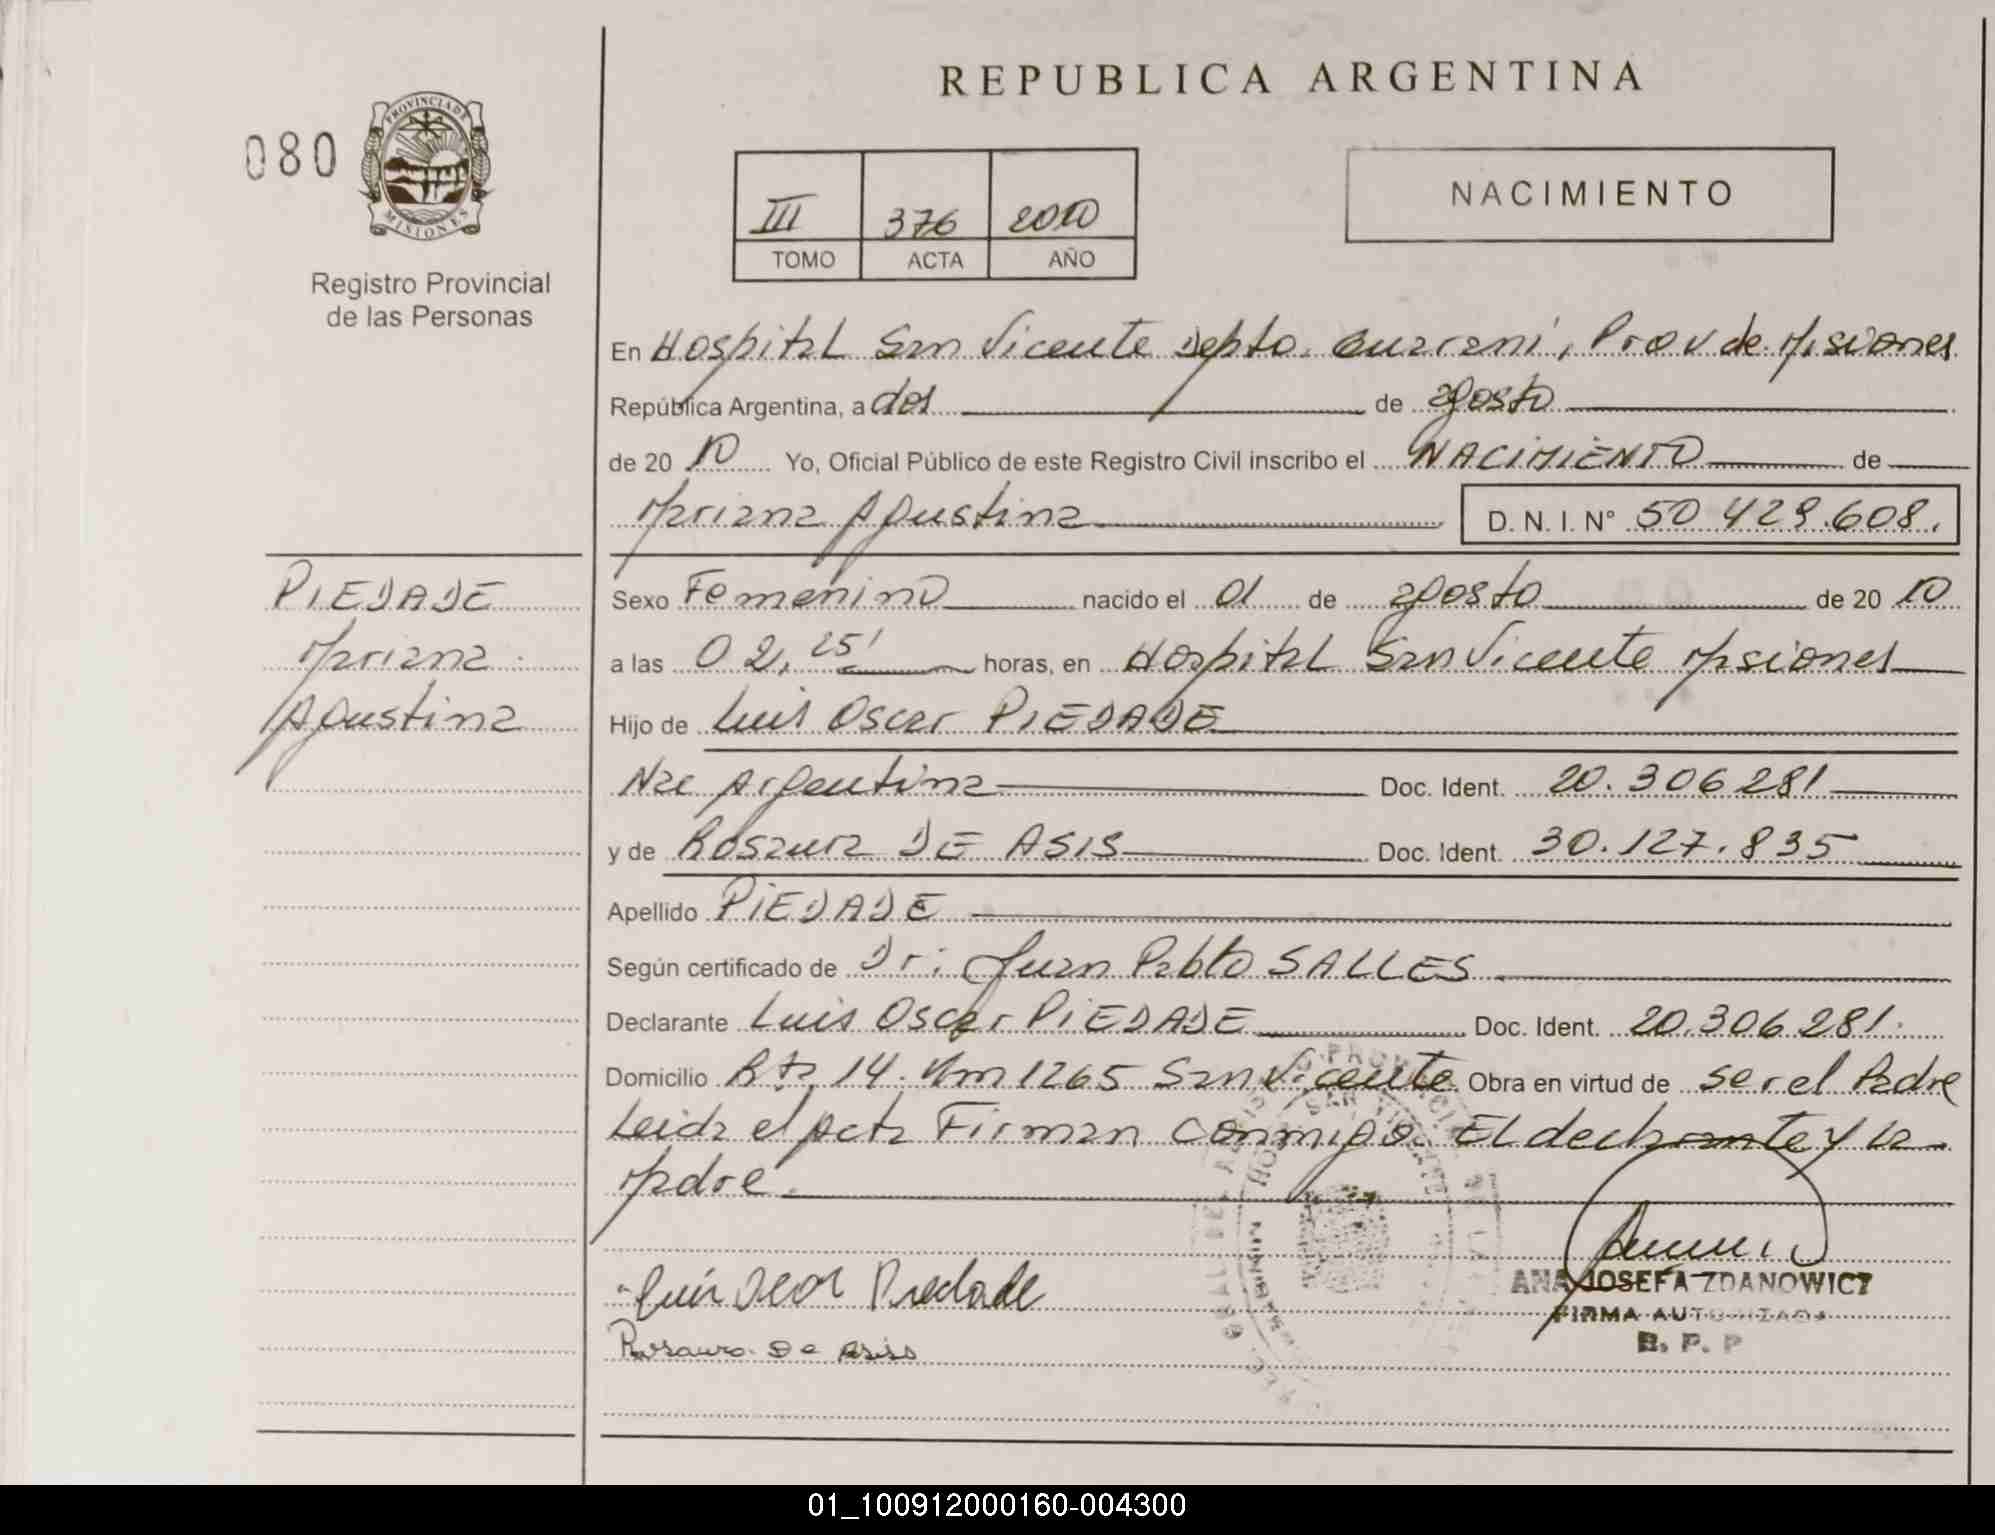 REPUBLICA ARGENTINA
080
PROVINCIA DE
MISIONES
Registro Provincial
de las Personas
III 376 2010
TOMO ACTA AÑO
NACIMIENTO
En Hospital San Vicente Depto. Guarani, Prov de Misiones
República Argentina, a dos de agosto
de 20 10 Yo, Oficial Público de este Registro Civil inscribo el NACIMIENTO de
Mariana Agustina D. N. I. N° 50 429.608.
PIEDADE
Mariana
Agustina
Sexo Femenino nacido el 01 de agosto de 20 10
a las 02,25' horas, en Hospital San Vicente Misiones
Hijo de Luis Oscar PIEDADE
Nac Argentina Doc. Ident. 20.306 281
y de Rosaura DE ASIS Doc. Ident. 30.127.835
Apellido PIEDADE
Según certificado de Dr: Juan Pablo SALLES
Declarante Luis Oscar PIEDADE Doc. Ident. 20.306 281.
Domicilio Rta 14. Km 1265 San Vicente Obra en virtud de ser el Padre
Leida el Acta Firman conmigo. El declarante y la
Madre.
Luis Oscar Piedade
Rosaura De Asis
ANA JOSEFA ZDANOWICZ
FIRMA AUTORIZADA
R. P. P
01_100912000160-004300